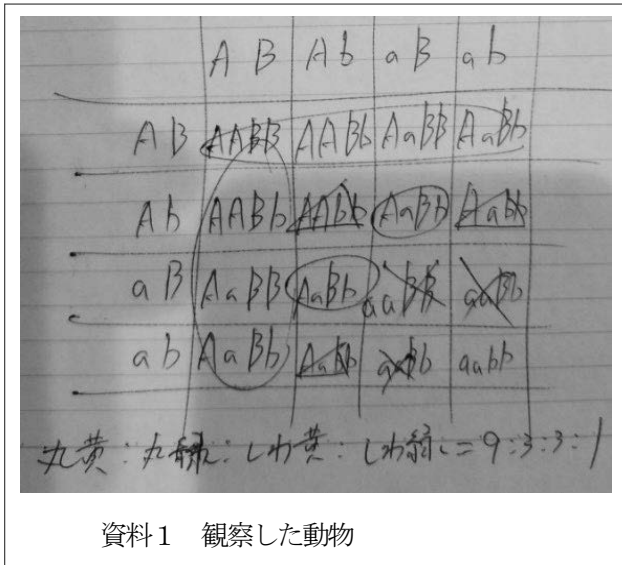 AB Ab aB ab
AB AABB AABb AaBB AaBb
Ab AABb AAbb AaBb Aabb
aB AaBB AaBb aaBB aaBb
ab AaBb Aabb aaBb aabb
丸黄:丸緑:しわ黄:しわ緑=9:3:3:1
資料1 観察した動物